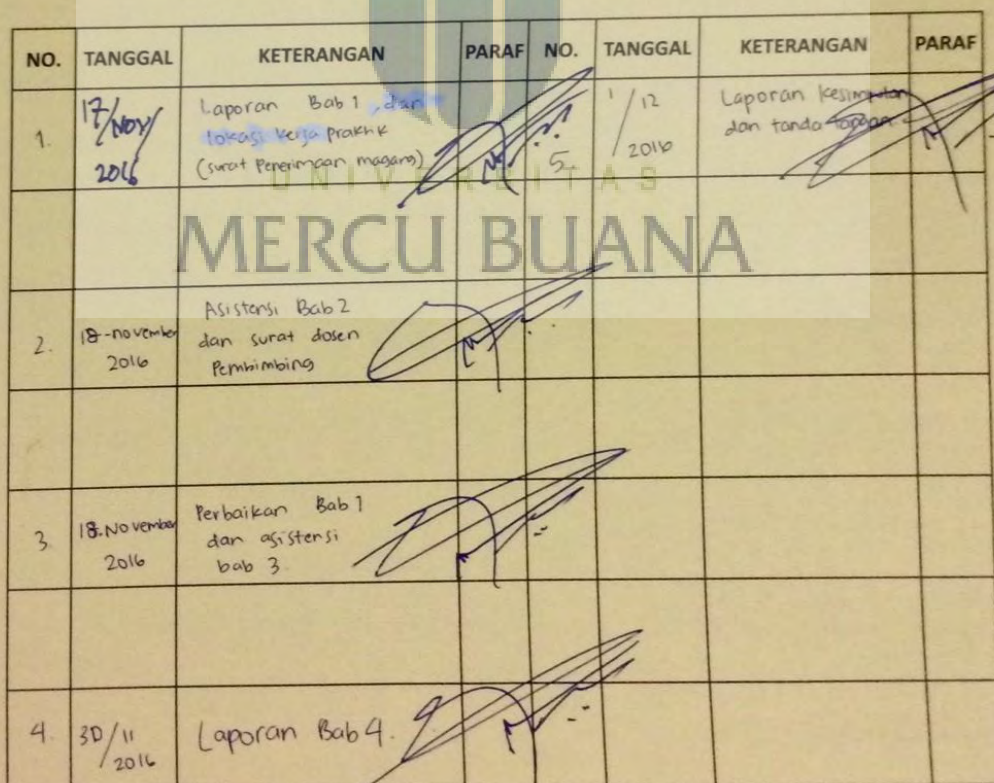 NO. TANGGAL KETERANGAN PARAF NO. TANGGAL KETERANGAN PARAF
1. 17/Nov/ 2016
Laporan Bab 1, dan
lokasi kerja praktik
(surat Penerimaan magang)
5. 1/12 2016
Laporan kesimpulan
dan tanda tangan
UNIVERSITAS
MERCU BUANA
2. 18-november 2016
Asistensi Bab 2
dan surat dosen
Pembimbing
3. 18. November 2016
Perbaikan Bab 1
dan asistensi
bab 3
4. 30/11 2016
Laporan Bab 4.